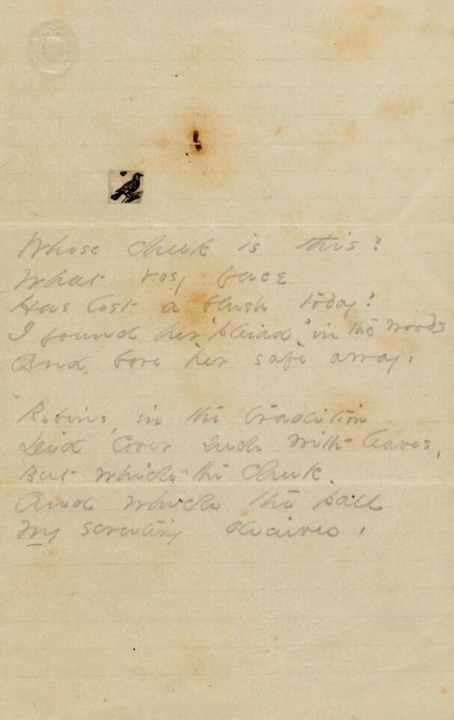 Whose cheek is this?
What rosy face
Has lost a blush today?
I found her "pleiad" in the woods
And bore her safe away.
"Robins, in the tradition
Did cover such with leaves,
But which the cheek,
And which the pall
My scrutiny deceives,